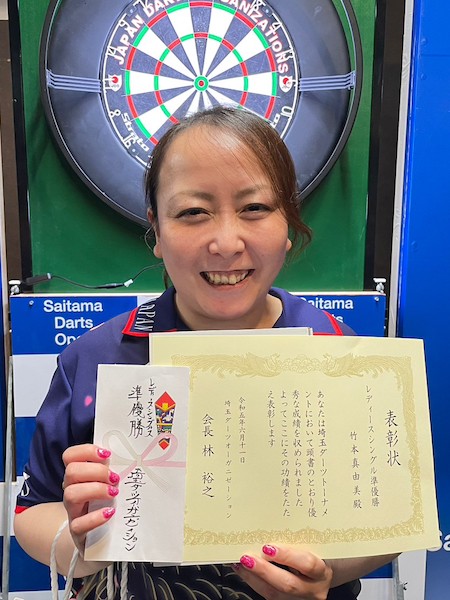 JAPAN DARTS ORGANIZATIONS
Saitama
Darts
Saitama
Darts
JAPAN
レディースシングルス
準優勝
埼玉ダーツオーガニゼーション
表彰状
レディースシングル準優勝
竹本真由美殿
あなたは埼玉ダーツトーナメ
ントにおいて頭書のとおり優
秀な成績を収められました
よってここにその功績をたた
え表彰します
令和五年六月十一日
埼玉ダーツオーガニゼーション
会長 林 裕之